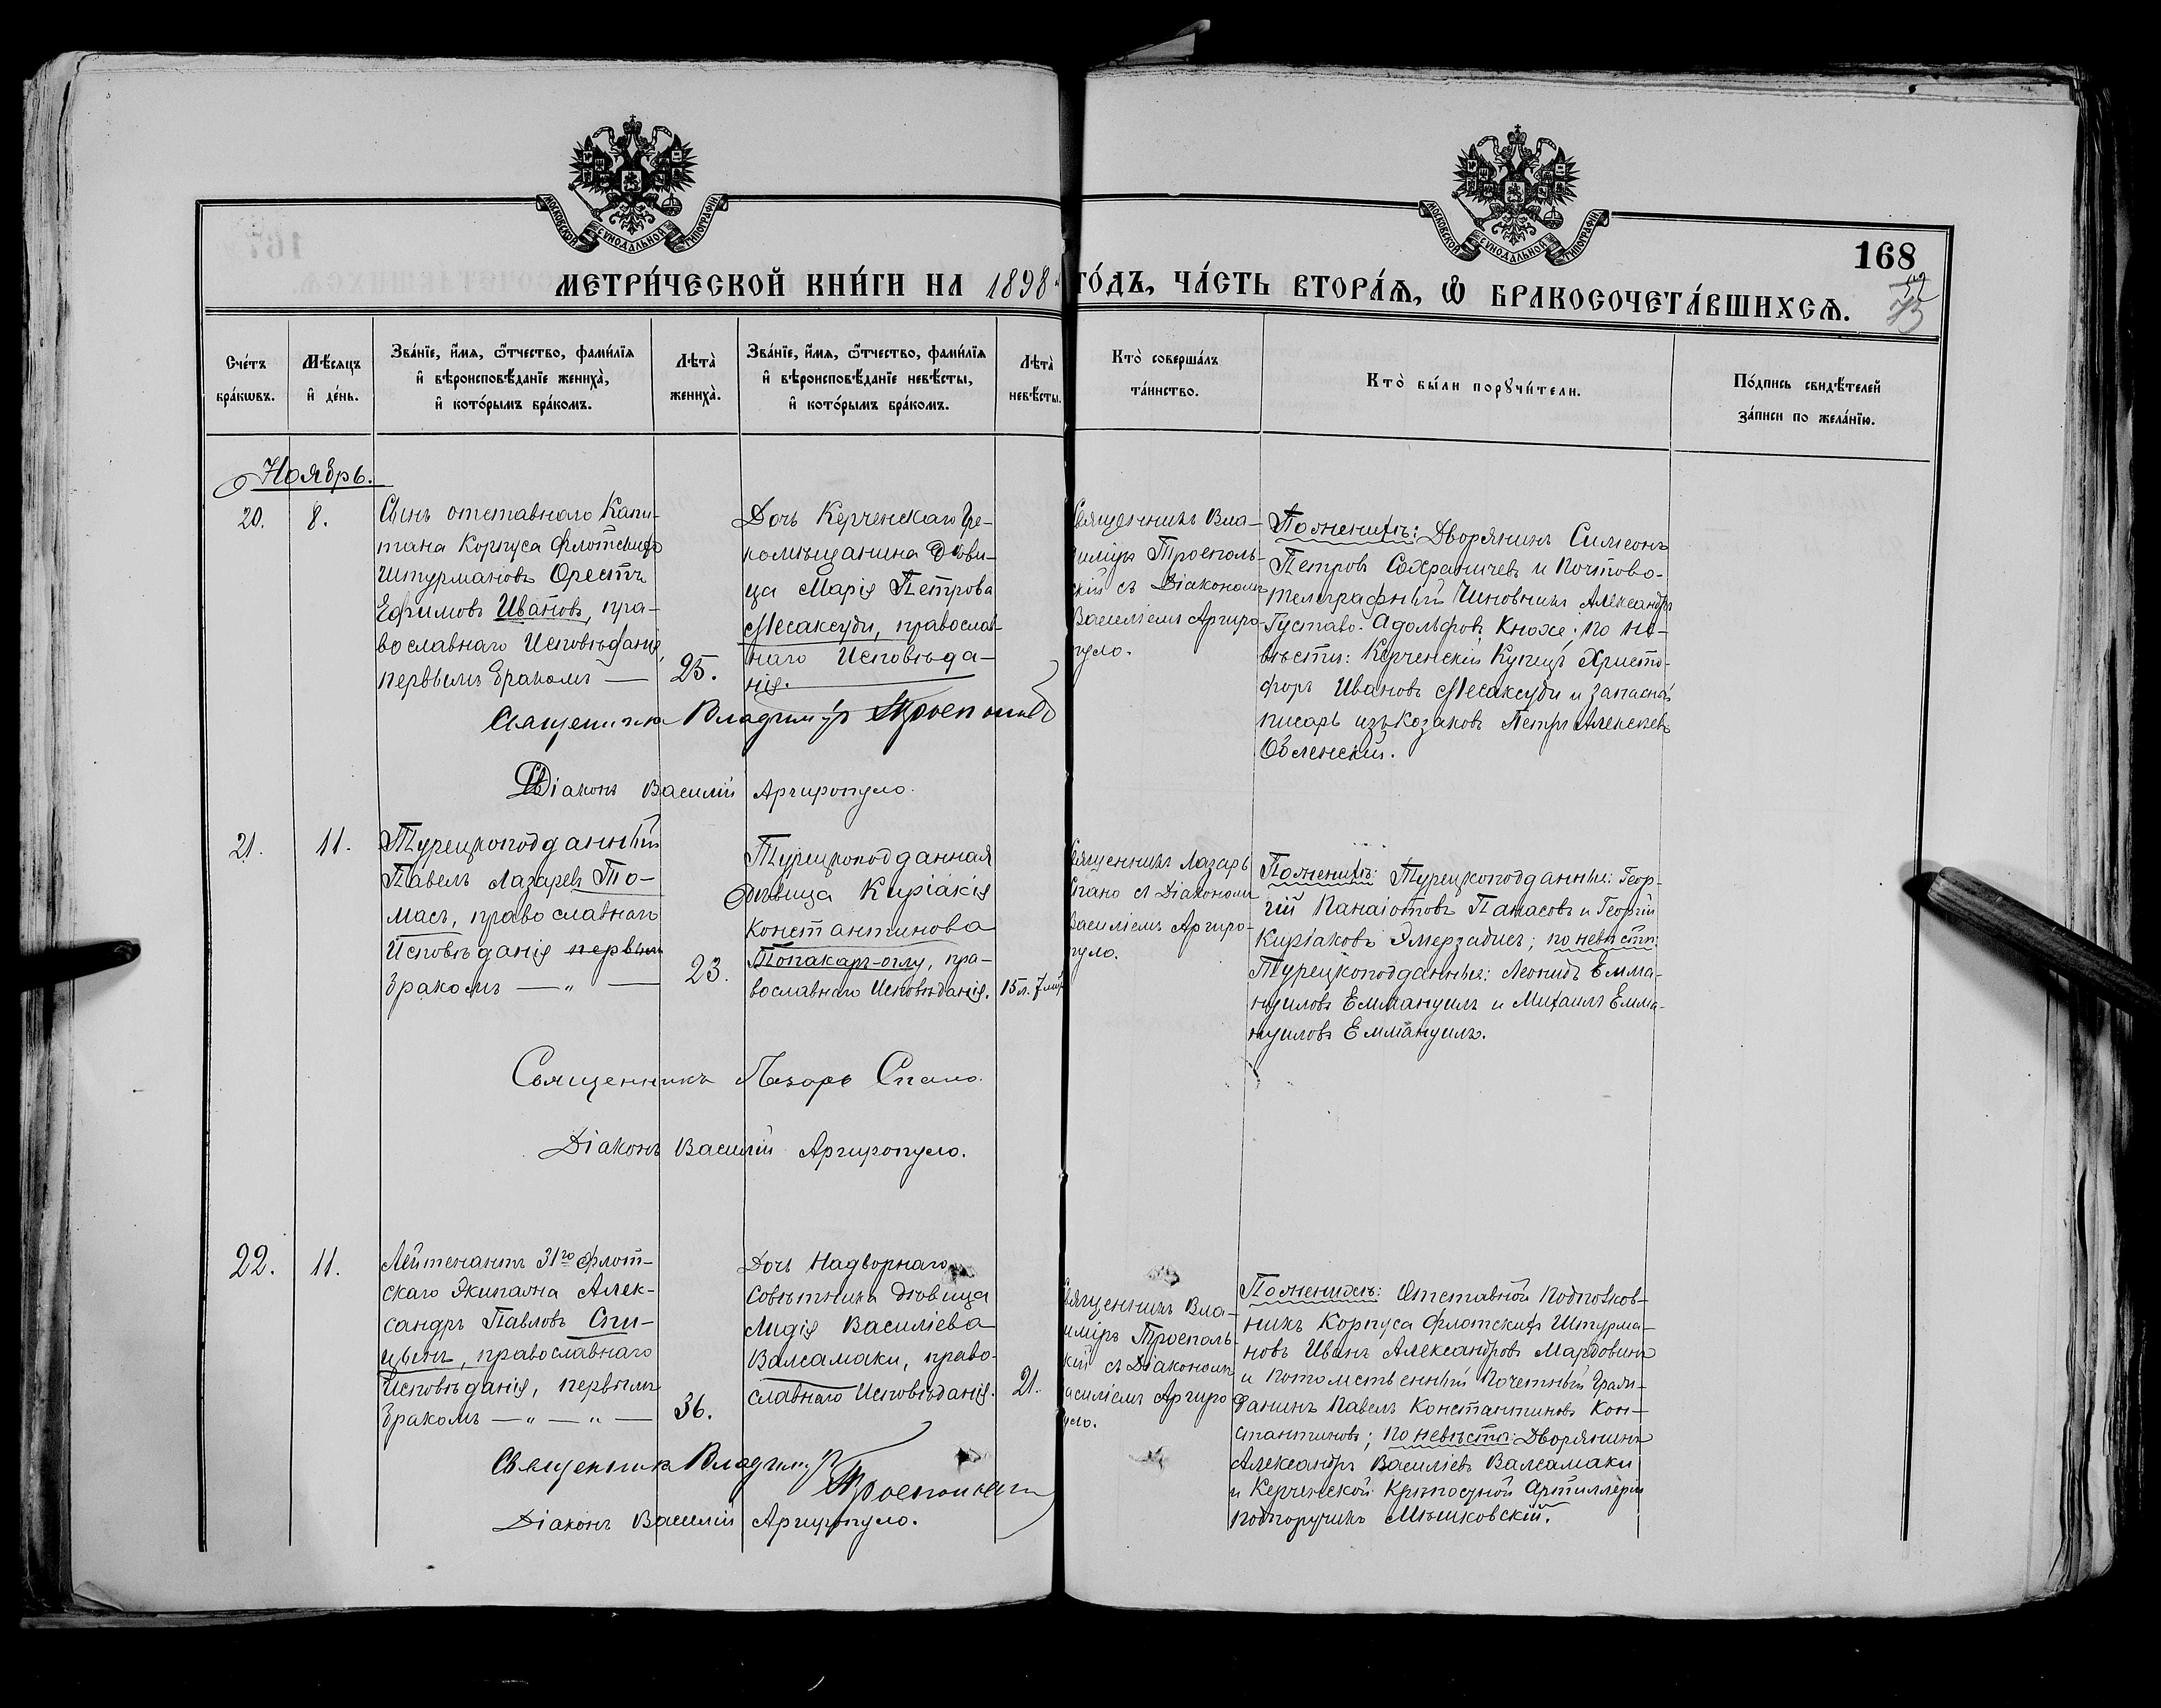 МОСКОВСКОЙ СѴНОДАЛЬНОЙ ТИПОГРАФІИ
МОСКОВСКОЙ СѴНОДАЛЬНОЙ ТИПОГРАФІИ
168
МЕТРИ́ЧЕСКОЙ КНИ́ГИ НА 1898 ГО́ДЪ, ЧА́СТЬ ВТОРА́Ѧ, Ѽ БРАКОСОЧЕТА́ВШИХСѦ.
Сче́тъ бра́кѡвъ.
Мѣ́сяцъ и҆ де́нь.
Зва́нїе, и҆́мѧ, ѻ҆́тчество, фами́лїѧ
и҆ вѣроисповѣ́данїе жениха̀,
и҆ кото́рымъ бра́комъ.
Лѣта̀ жениха̀.
Зва́нїе, и҆́мѧ, ѻ҆́тчество, фами́лїѧ
и҆ вѣроисповѣ́данїе невѣ́сты,
и҆ кото́рымъ бра́комъ.
Лѣта̀ невѣ́сты.
Кто̀ соверша́лъ
та́инство.
Кто̀ бы́ли порꙋчи́тели.
По́дпись свидѣ́телей
за́писи по жела́нїю.
Ноябрь.
20.
8.
Сынъ отставнаго Капи-
тана Корпуса Флотскихъ
Штурмановъ Орестъ
Ефимовъ Ивановъ, пра-
вославнаго Исповѣданія,
первымъ бракомъ —
25.
Дочь Керченскаго Гре-
комѣщанина Дѣви-
ца Марія Петрова
Месаксуди, православ-
наго Исповѣда-
нія.
Священникъ Вла-
диміръ Троеполь-
скій съ Діакономъ
Василіемъ Аргиро-
пуло.
По женихѣ: Дворянинъ Симеонъ
Петровъ Сахраничевъ и Почтово-
телеграфный Чиновникъ Александръ
Густаво-Адольфовъ Кнохе; по не-
вѣстѣ: Керченскій Купецъ Христо-
форъ Ивановъ Месаксуди и запасный
писарь изъ Козаковъ Петръ Алексѣевъ
Оболенскій.
Священникъ Владиміръ Троепольскій
Діаконъ Василій Аргиропуло.
21.
11.
Турецкоподданный
Павелъ Лазаревъ То-
масъ, православнаго
Исповѣданія первымъ
бракомъ — „ —
23.
Турецкоподданная
Дѣвица Киріакія
Константинова
Топакаръ-оглу, пра-
вославнаго Исповѣданія.
15 л. 7 мѣс
Священникъ Лазарь
Спано съ Діакономъ
Василіемъ Аргиро-
пуло.
По женихѣ: Турецкоподданные: Геор-
гій Панаіотовъ Панасовъ и Георгій
Киріаковъ Эмерзадисъ; по невѣстѣ:
Турецкоподданные: Леонидъ Емма-
нуиловъ Еммануилъ и Михаилъ Емма-
нуиловъ Еммануилъ.
Священникъ Лазарь Спано.
Діаконъ Василій Аргиропуло.
22.
11.
Лейтенантъ 31го Флот-
скаго Экипажа Алек-
сандръ Павловъ Спи-
цынъ, православнаго
Исповѣданія, первымъ
бракомъ — „ — „ —
36.
Дочь Надворнаго
Совѣтника Дѣвица
Лидія Василіева
Валсамаки, право-
славнаго Исповѣданія.
21.
Священникъ Вла-
диміръ Троеполь-
скій съ Діакономъ
Василіемъ Аргиро
пуло.
По женихѣ: Отставной Подполков-
никъ Корпуса Флотскихъ Штурма-
новъ Иванъ Александровъ Мардовинъ
и Потомственный Почетный Граж-
данинъ Павелъ Константиновъ Кон-
стантиновъ; по невѣстѣ: Дворянинъ
Александръ Василіевъ Валсамаки
и Керченской Крѣпостной Артиллеріи
подпоручикъ Мѣшковскій.
Священникъ Владиміръ
Троепольскій
Діаконъ Василій Аргиропуло.